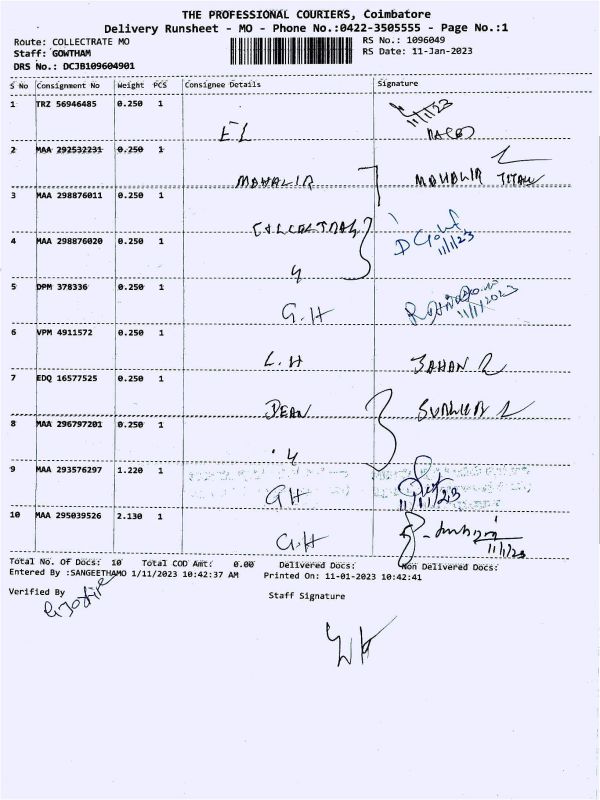 THE PROFESSIONAL COURIERS, Coimbatore
Delivery Runsheet - MO - Phone No.:0422-3505555 - Page No.:1
Route: COLLECTRATE MO
RS No.: 1096049
Staff: GOWTHAM
RS Date: 11-Jan-2023
DRS No.: DCJB109604901
S No Consignment No Weight PCS Consignee Details Signature
1 TRZ 56946485 0.250 1
11/1/23
EL
2 MAA 292532231 0.250 1
MAHALIR
3 MAA 298876011 0.250 1
4 MAA 298876020 0.250 1
11/1/23
5 DPM 378336 0.250 1
G.H
11/1/2023
6 VPM 4911572 0.250 1
L.H
7 EDQ 16577525 0.250 1
DEAN
8 MAA 296797201 0.250 1
9 MAA 293576297 1.220 1
GH
11/11/23
10 MAA 295039526 2.130 1
G.H
11/1/23
Total No. Of Docs: 10 Total COD Amt: 0.00 Delivered Docs: Non Delivered Docs:
Entered By :SANGEETHAMO 1/11/2023 10:42:37 AM Printed On: 11-01-2023 10:42:41
Verified By
Staff Signature